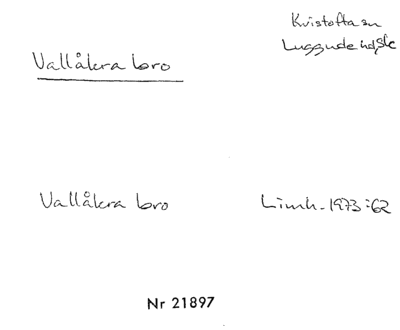 Kvistofta sn
Luggude hd, Sk
Vallåkra bro
Vallåkra bro
Limh. 1973:62
Nr 21897